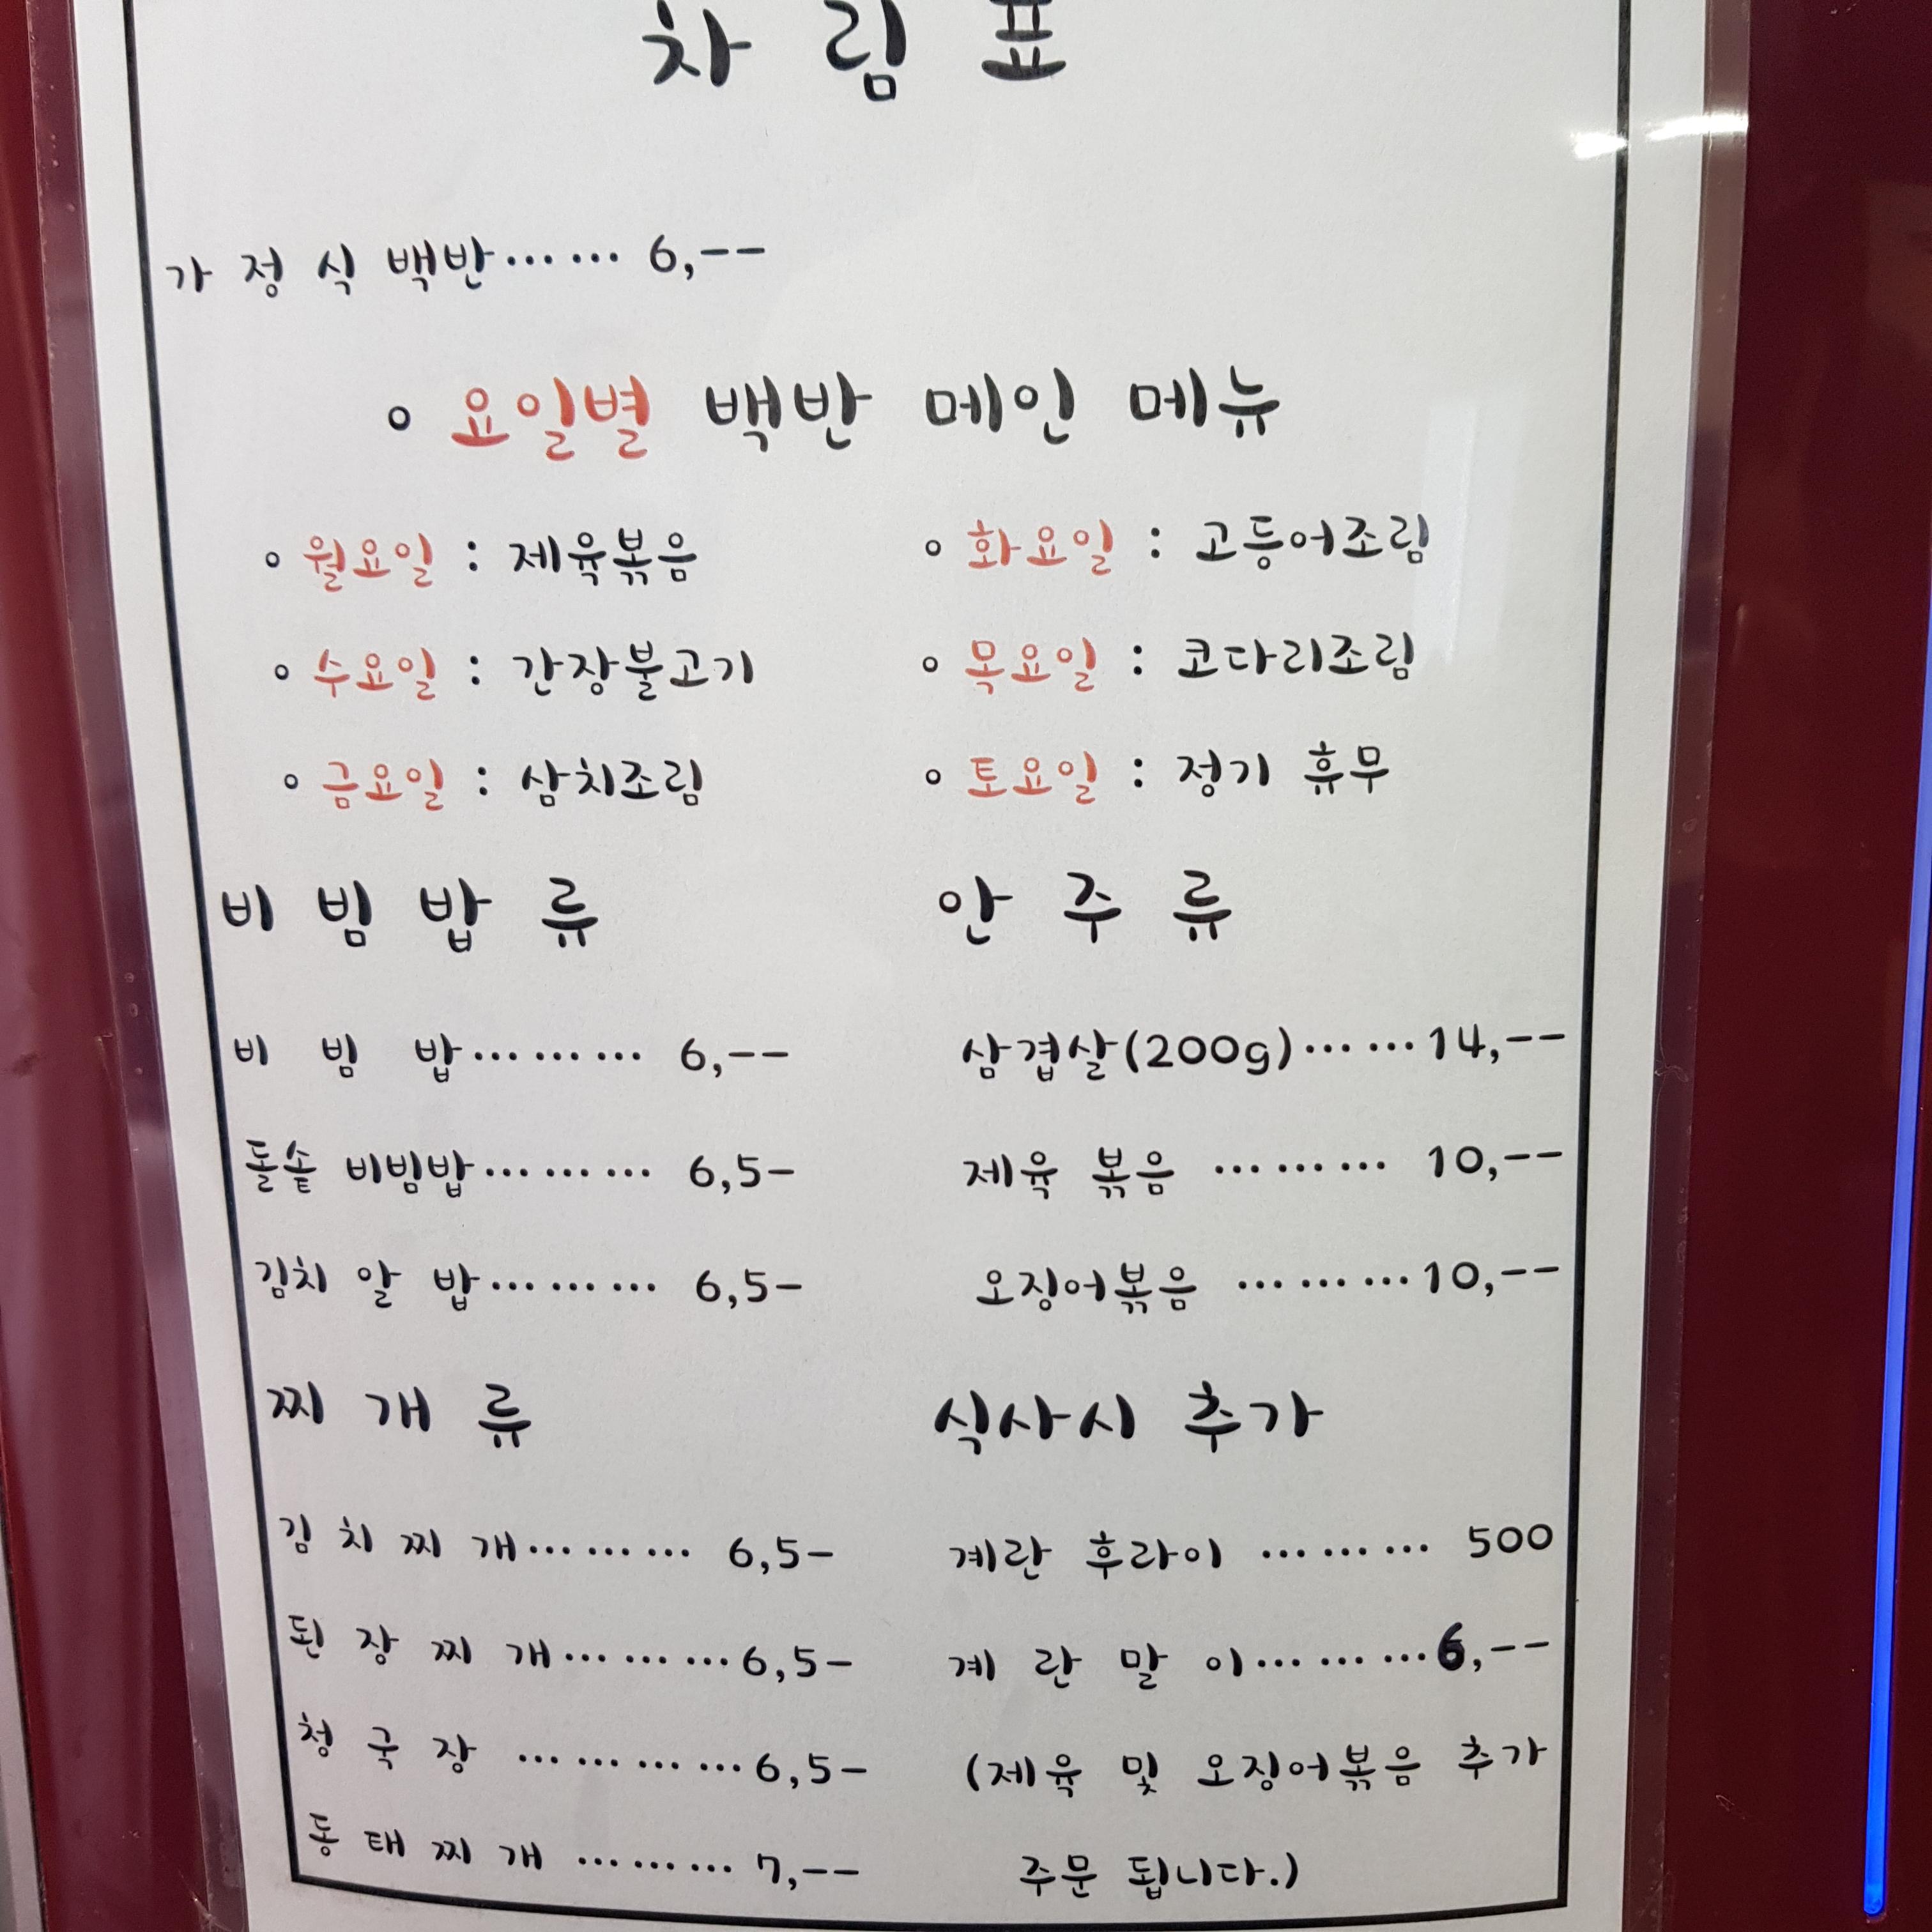 차 림 표
가 정 식 백반…… 6,--
◦ 요일별 백반 메인 메뉴
◦ 월요일 : 제육볶음
◦ 화요일 : 고등어조림
◦ 수요일 : 간장불고기
◦ 목요일 : 코다리조림
◦ 금요일 : 삼치조림
◦ 토요일 : 정기 휴무
비 빔 밥 류
비 빔 밥……… 6,--
돌솥 비빔밥……… 6,5-
김치 알 밥……… 6,5-
안 주 류
삼겹살(200g)……14,--
제육 볶음 ……… 10,--
오징어볶음 ………10,--
찌 개 류
김 치 찌 개……… 6,5-
된 장 찌 개………6,5-
청 국 장 …………6,5-
동 태 찌 개 ……… 7,--
식사시 추가
계란 후라이 ……… 500
계 란 말 이………6,--
(제육 및 오징어볶음 추가
주문 됩니다.)